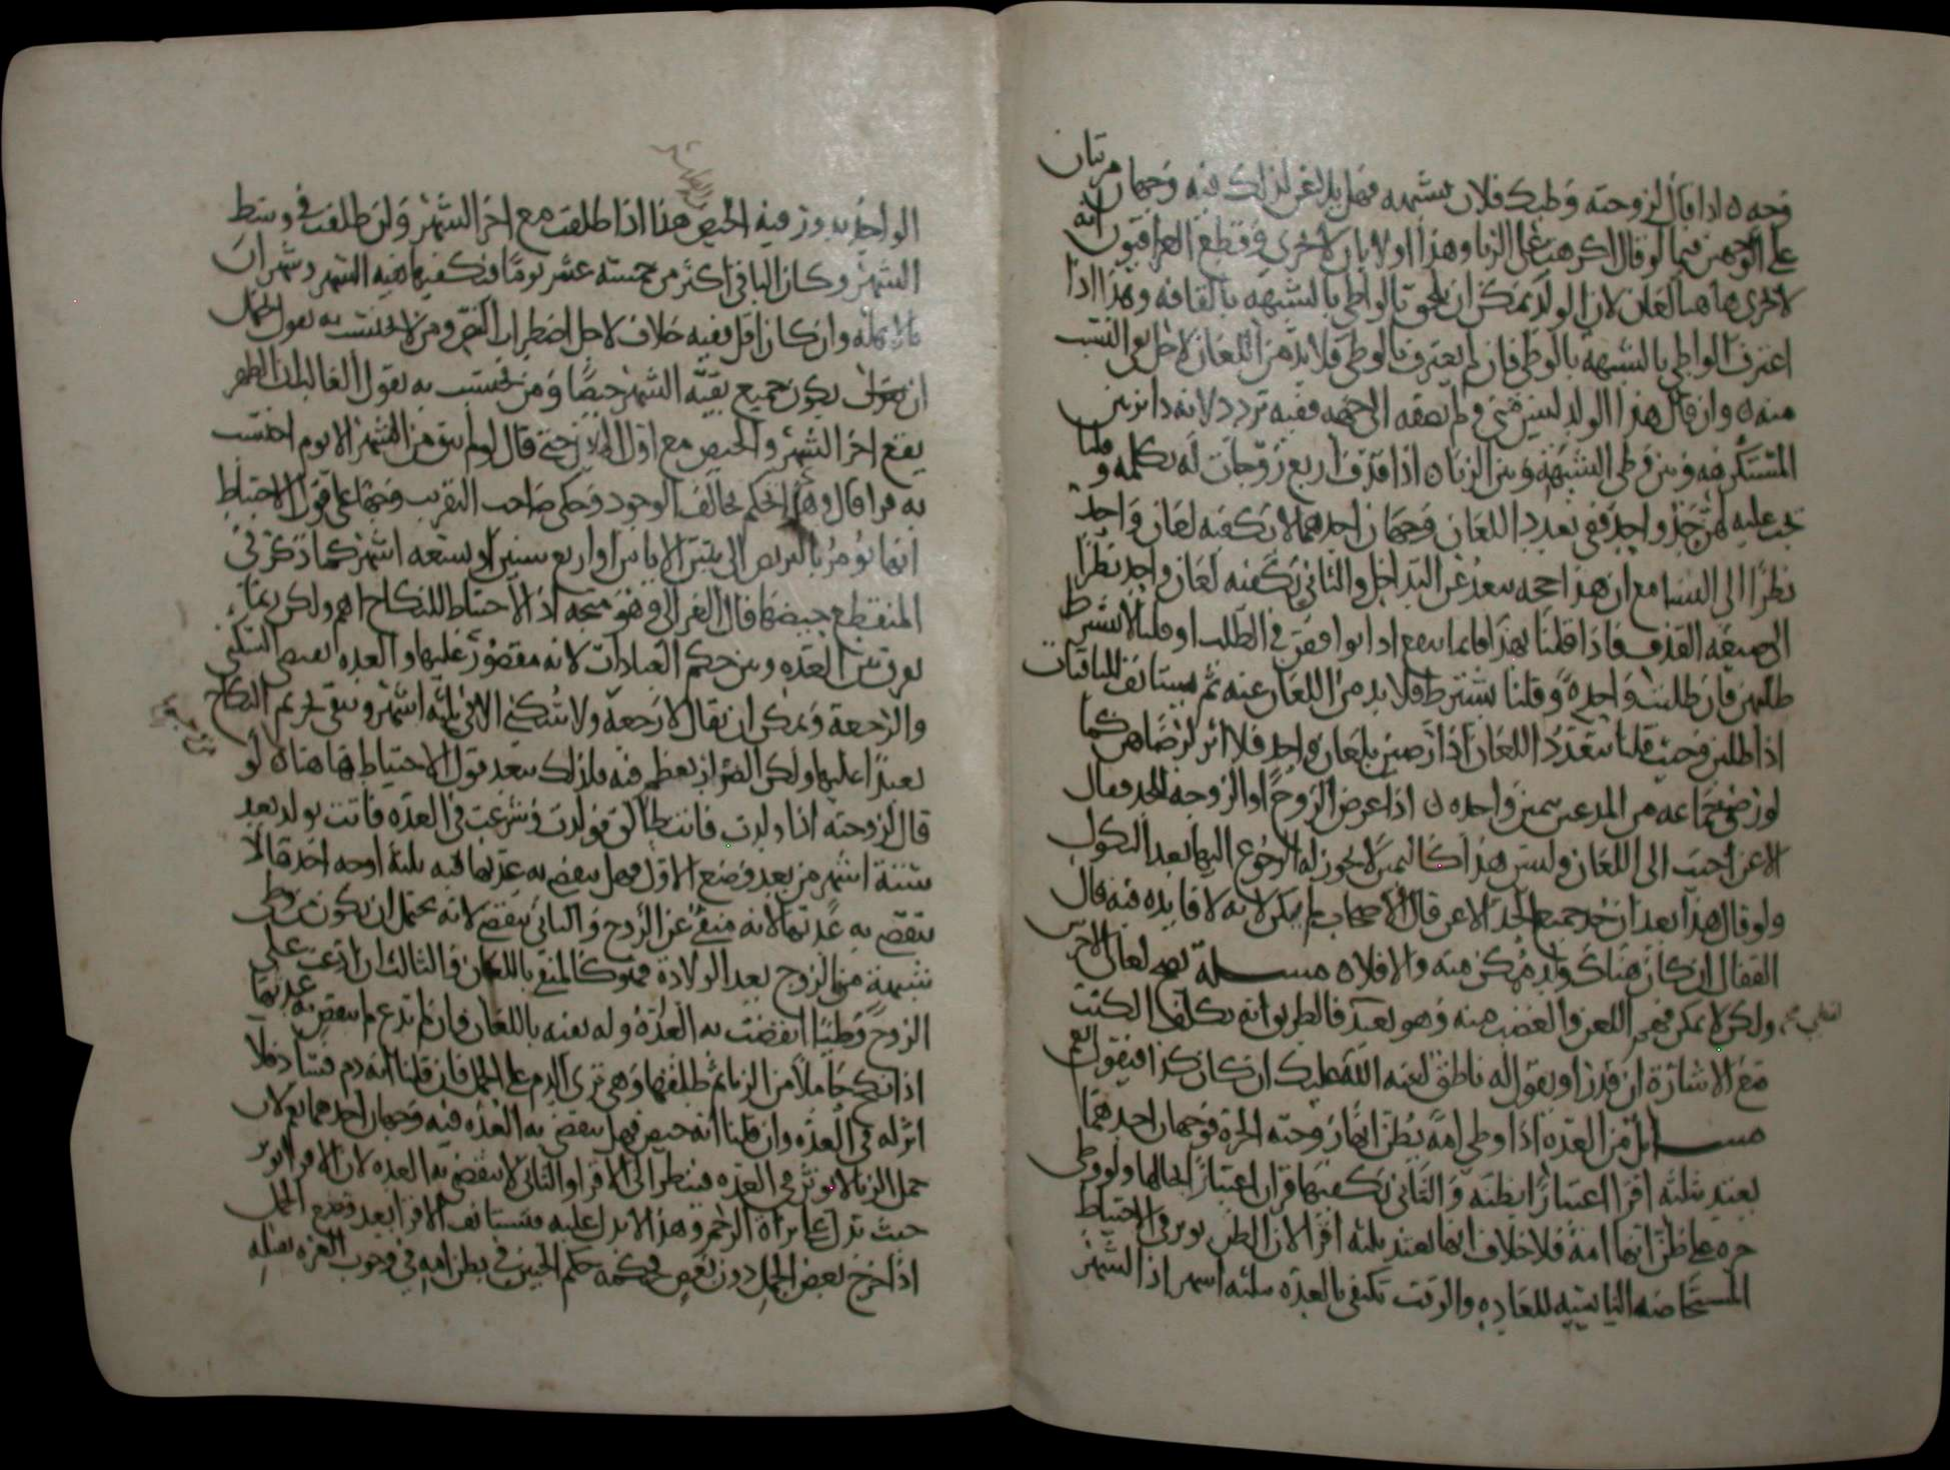 وجه ه اذا قال لزوجته وطيك فلان بشبهه فهل يلاعن لذلك فيه وجهان مرتبان
على الوجهين فيما لو قال اكرهت على الزنا وهذا اولا بان لا يجرى وقطع العراقيون بانه
لا يجرى هاهنا لعان لان الولد يمكن ان يلحق بالواطي بالشبهه بالقافه وهذا اذا
اعترف الواطي بالشبهة بالوطى فان لم يعترف بالوطى فلا بد من اللعان لاجل نفي النسب
منه ه وان قال هذا الولد ليس مني ولم يضفه الى جهه ففيه تردد لانه دائر بين
المستكرهه وبين وطى الشبهة وبين الزنا ه اذا قذف اربع زوجات له بكلمه وقلنا
يجب عليه لهن حد واحد ففي تعدد اللعان وجهان احدهما لا يكفيه لعان واحد
نظرا الى النسا مع ان هذا حجه تبعد عن التداخل والثاني يكفيه لعان واحد نظرا
الى صيغه القذف فاذا قلنا بهذا فانما ينفع اذا توافقن في الطلب او قلنا لا يشترط
طلبهن فان طلبت واحدة وقلنا يشترط فلا بد من اللعان عنه ثم يستانف للباقيات
اذا طلبن وحيث قلنا بتعدد اللعان اذا رضين بلعان واحد فلا اثر لرضاهن كما
لو رضي جماعه من المدعين بيمين واحده ه اذا عرض الزوج او الزوجه للحد فقال
الاعن اجيب الى اللعان وليس هذا كاليمين لا يجوز له الرجوع اليها بعد النكول
ولو قال هذا بعد ان حد جميع الحد الاعن قال الاصحاب لم يمكن لانه لا فايده فيه قال
القفال ان كان هناك ولد مكن منه والا فلا ه مسلة يصح لعان الاخرس
ولكن لا يمكن فهم اللعن والغضب منه وهو بعيد فالطريق انه يكلف الكتب
مع الاشارة ان قدر او يقول له ناطق لعنه الله عليك ان كان كذا فيقول نعم
مسايل من العده اذا وطي امة يظن انها زوجته الحرة فوجهان احدهما
يعتد ثلثه اقرا اعتبارا بظنه والثاني يكفيها قران اعتبارا بحالها ولو وطى
حره على ظن انها امة فلا خلاف انها تعتد بثلثه اقرا لان الظن يوثر في الاحتياط
المستحاضه الناسيه للعاده والوقت تكتفي بالعده بثلثه اشهر اذ الشهر
الواحد يدور فيه الحيض هذا اذا طلقت مع اخر الشهر وان طلقت في وسط
الشهر وكان الباقي اكثر من خمسة عشر يوما فتكفيها بقيه الشهر وشهران
بالاهله وان كان اقل ففيه خلاف لاجل اضطراب ومن لا يحتسب به يقول يحتمل
ان يكون جميع بقيه الشهر حيضا ومن يحتسب به يقول الغالب ان الطهر
يقع اخر الشهر والحيض مع اول الهلال حتى قال لو لم يبق من الشهر الا يوم احتسب
به قرا قال وهذا تحكم يخالف الوجود وحكى صاحب التقريب وجها على قول الاحتياط
انها تومر بالتربص الى سن الاياس او اربع سنين او تسعه اشهر كما ذكر في
المنقطع حيضها قال الغزالي وهو متجه اذ الاحتياط للنكاح اهم ولكن ربما
يفرق بين العده وبين حكم العبادات لانه مقصور عليها والعده تقتضي السكنى
والرجعة ويمكن ان يقال لا رجعة ولا سكنى الا في ثلثه اشهر ويبقى تحريم النكاح
تعبدا عليها ولكن الضرار يعظم فيه فلذلك يبعد قول الاحتياط هاهنا ه لو
قال لزوجته اذا ولدت فانت طالق فولدت وشرعت في العده فاتت بولد بعد
ستة اشهر من بعد وضع الاول فهل تنقضي به عدتها فيه ثلثة اوجه احدها لا
تنقضي به عدتها لانه منفى عن الزوج والثاني تنقضي لانه يحتمل ان يكون من وطى
شبهة من الزوج بعد الولادة فهو كالمنفي باللعان والثالث ان ادعت على
الزوج وطيا انقضت به العدة وله نفيه باللعان وان لم تدع لم تنقض به عدتها
اذا نكح حاملا من الزنا ثم طلقها وهي ترى الدم على الحمل فان قلنا انه دم فساد فلا
اثر له في العده وان قلنا انه حيض فهل تنقضي به العده فيه وجهان احدهما نعم لان
حمل الزنا لا يوثر في العده فينظر الى الاقرا والثاني لا تنقضي به العده لان الاقرا تؤثر
حيث تدل على براة الرحم وهذا لا يدل عليه فتستانف الاقرا بعد وضع الحمل
اذا خرج بعض الحمل دون بعض فحكمه حكم الجنين في بطن امه في وجوب الغره بقتله